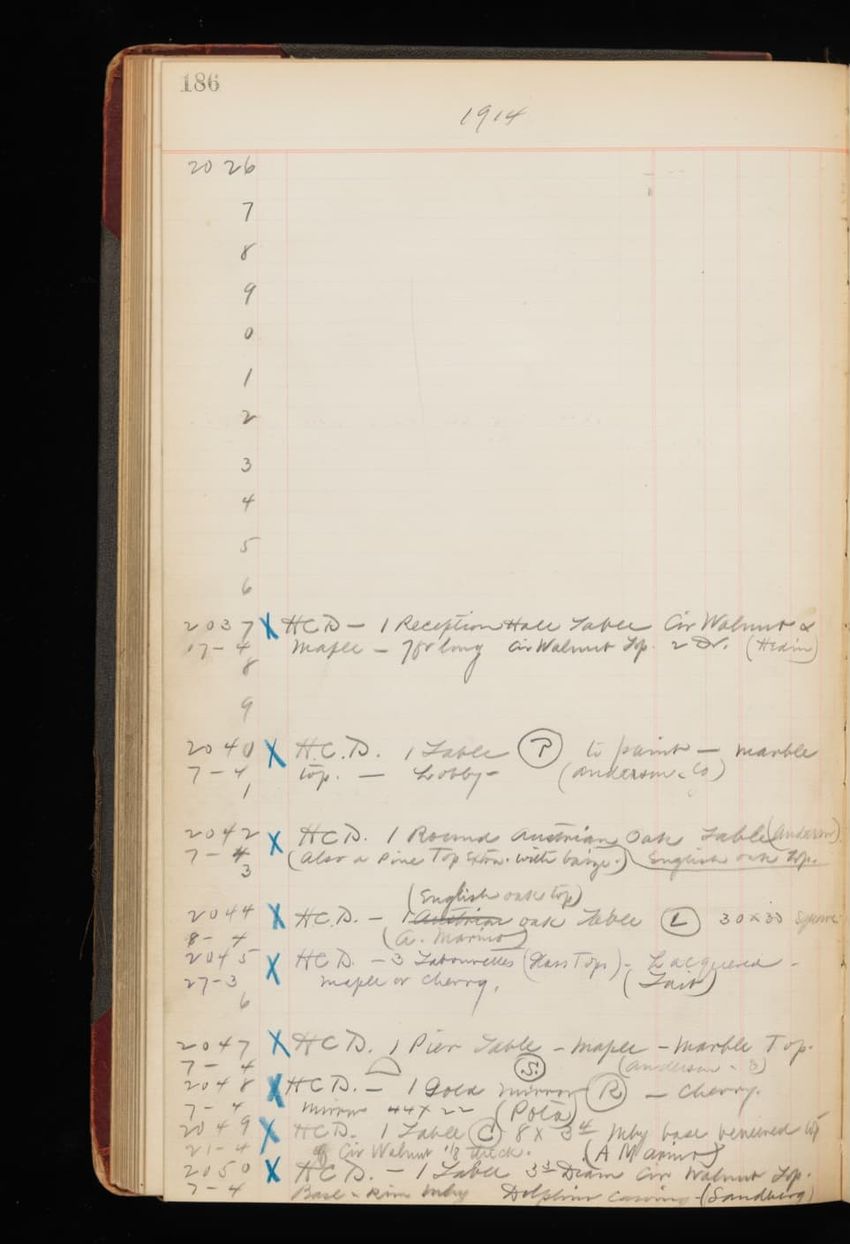 186
1914
2026
7
8
9
0
1
2
3
4
5
6
2037 X HCD - 1 Reception Hall Table Cir Walnut &
17-4 Maple - 78 long Cir Walnut Top. 2 Dr. (Hedin)
8
9
2040 X H.C.D. 1 Table (P) to paint - marble
7-4 top. - Lobby- (Anderson & Co)
1
2042 X HCD. 1 Round Austrian Oak Table (Anderson)
7-4 (Also a Pine Top Extra. with baize.) English oak top.
3
(English oak top)
2044 X HCD. - 1 Austrian oak Table (L) 30x30 square
8-4 (A. Marino)
2045 X HCD - 3 Tabourettes (Glass Tops) - Lacquered -
27-3 maple or cherry. (Tait)
6
2047 X HCD. 1 Pier Table - Maple - Marble Top.
7-4 (S.) (Anderson - 3)
2048 X HCD. - 1 Gold mirror (R) - Cherry.
7-4 Mirror 44x22 (Pola)
2049 X HCD. 1 Table (C) 8 x 3 Mhy base veneered top
21-4 of Cir Walnut 1/8 thick. (A Marino)
2050 X HCD. - 1 Table Diam Cir Walnut Top.
7-4 Base & Rim Mhy Dolphin Carving - (Sandberg)